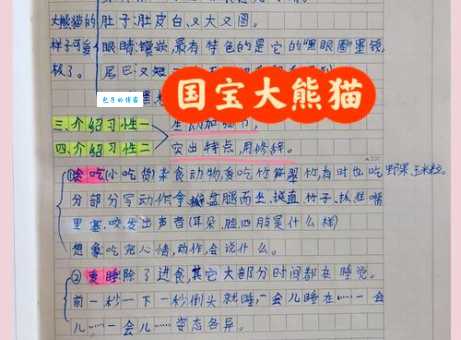 大熊猫的 肚子:肚皮白,又大又圆。
样子可爱 眼睛:镶嵌,最有特色的是它的"黑眼圈墨镜,
极了。 尾巴:又短
包月的博客
国宝大熊猫
三.介绍习性一
四.介绍习性二 突出特点,用修辞。
①贪吃(小吃货)素食动物,喜吃竹笋,翠竹,有时也吃野果,玉米粒。
分部分写动作,拿 盘腿而坐,拔直竹子,抓往嘴
里塞,咬,发出声音(耳朵,脸,四肢是什么样)
想象吃完,人情,动作,会说什么。
②爱睡.除了进食,其它大部分时间都在睡觉。
前一秒…下一秒倒头就睡,一会儿睡在……一会
儿……一会儿…… 姿态各异。